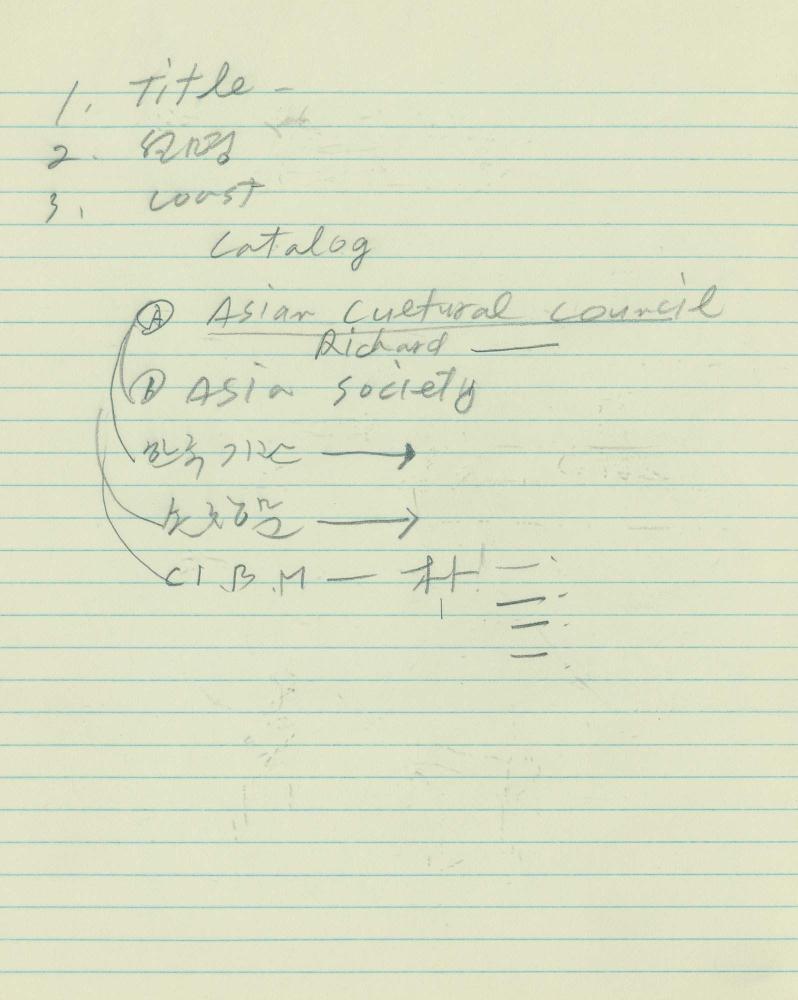 1. Title -
2.
3. coast
catalog
Ⓐ Asian Cultural Council
Richard —
ⓑ Asia society
한국 기간 →
→
C I.B.M — 朴